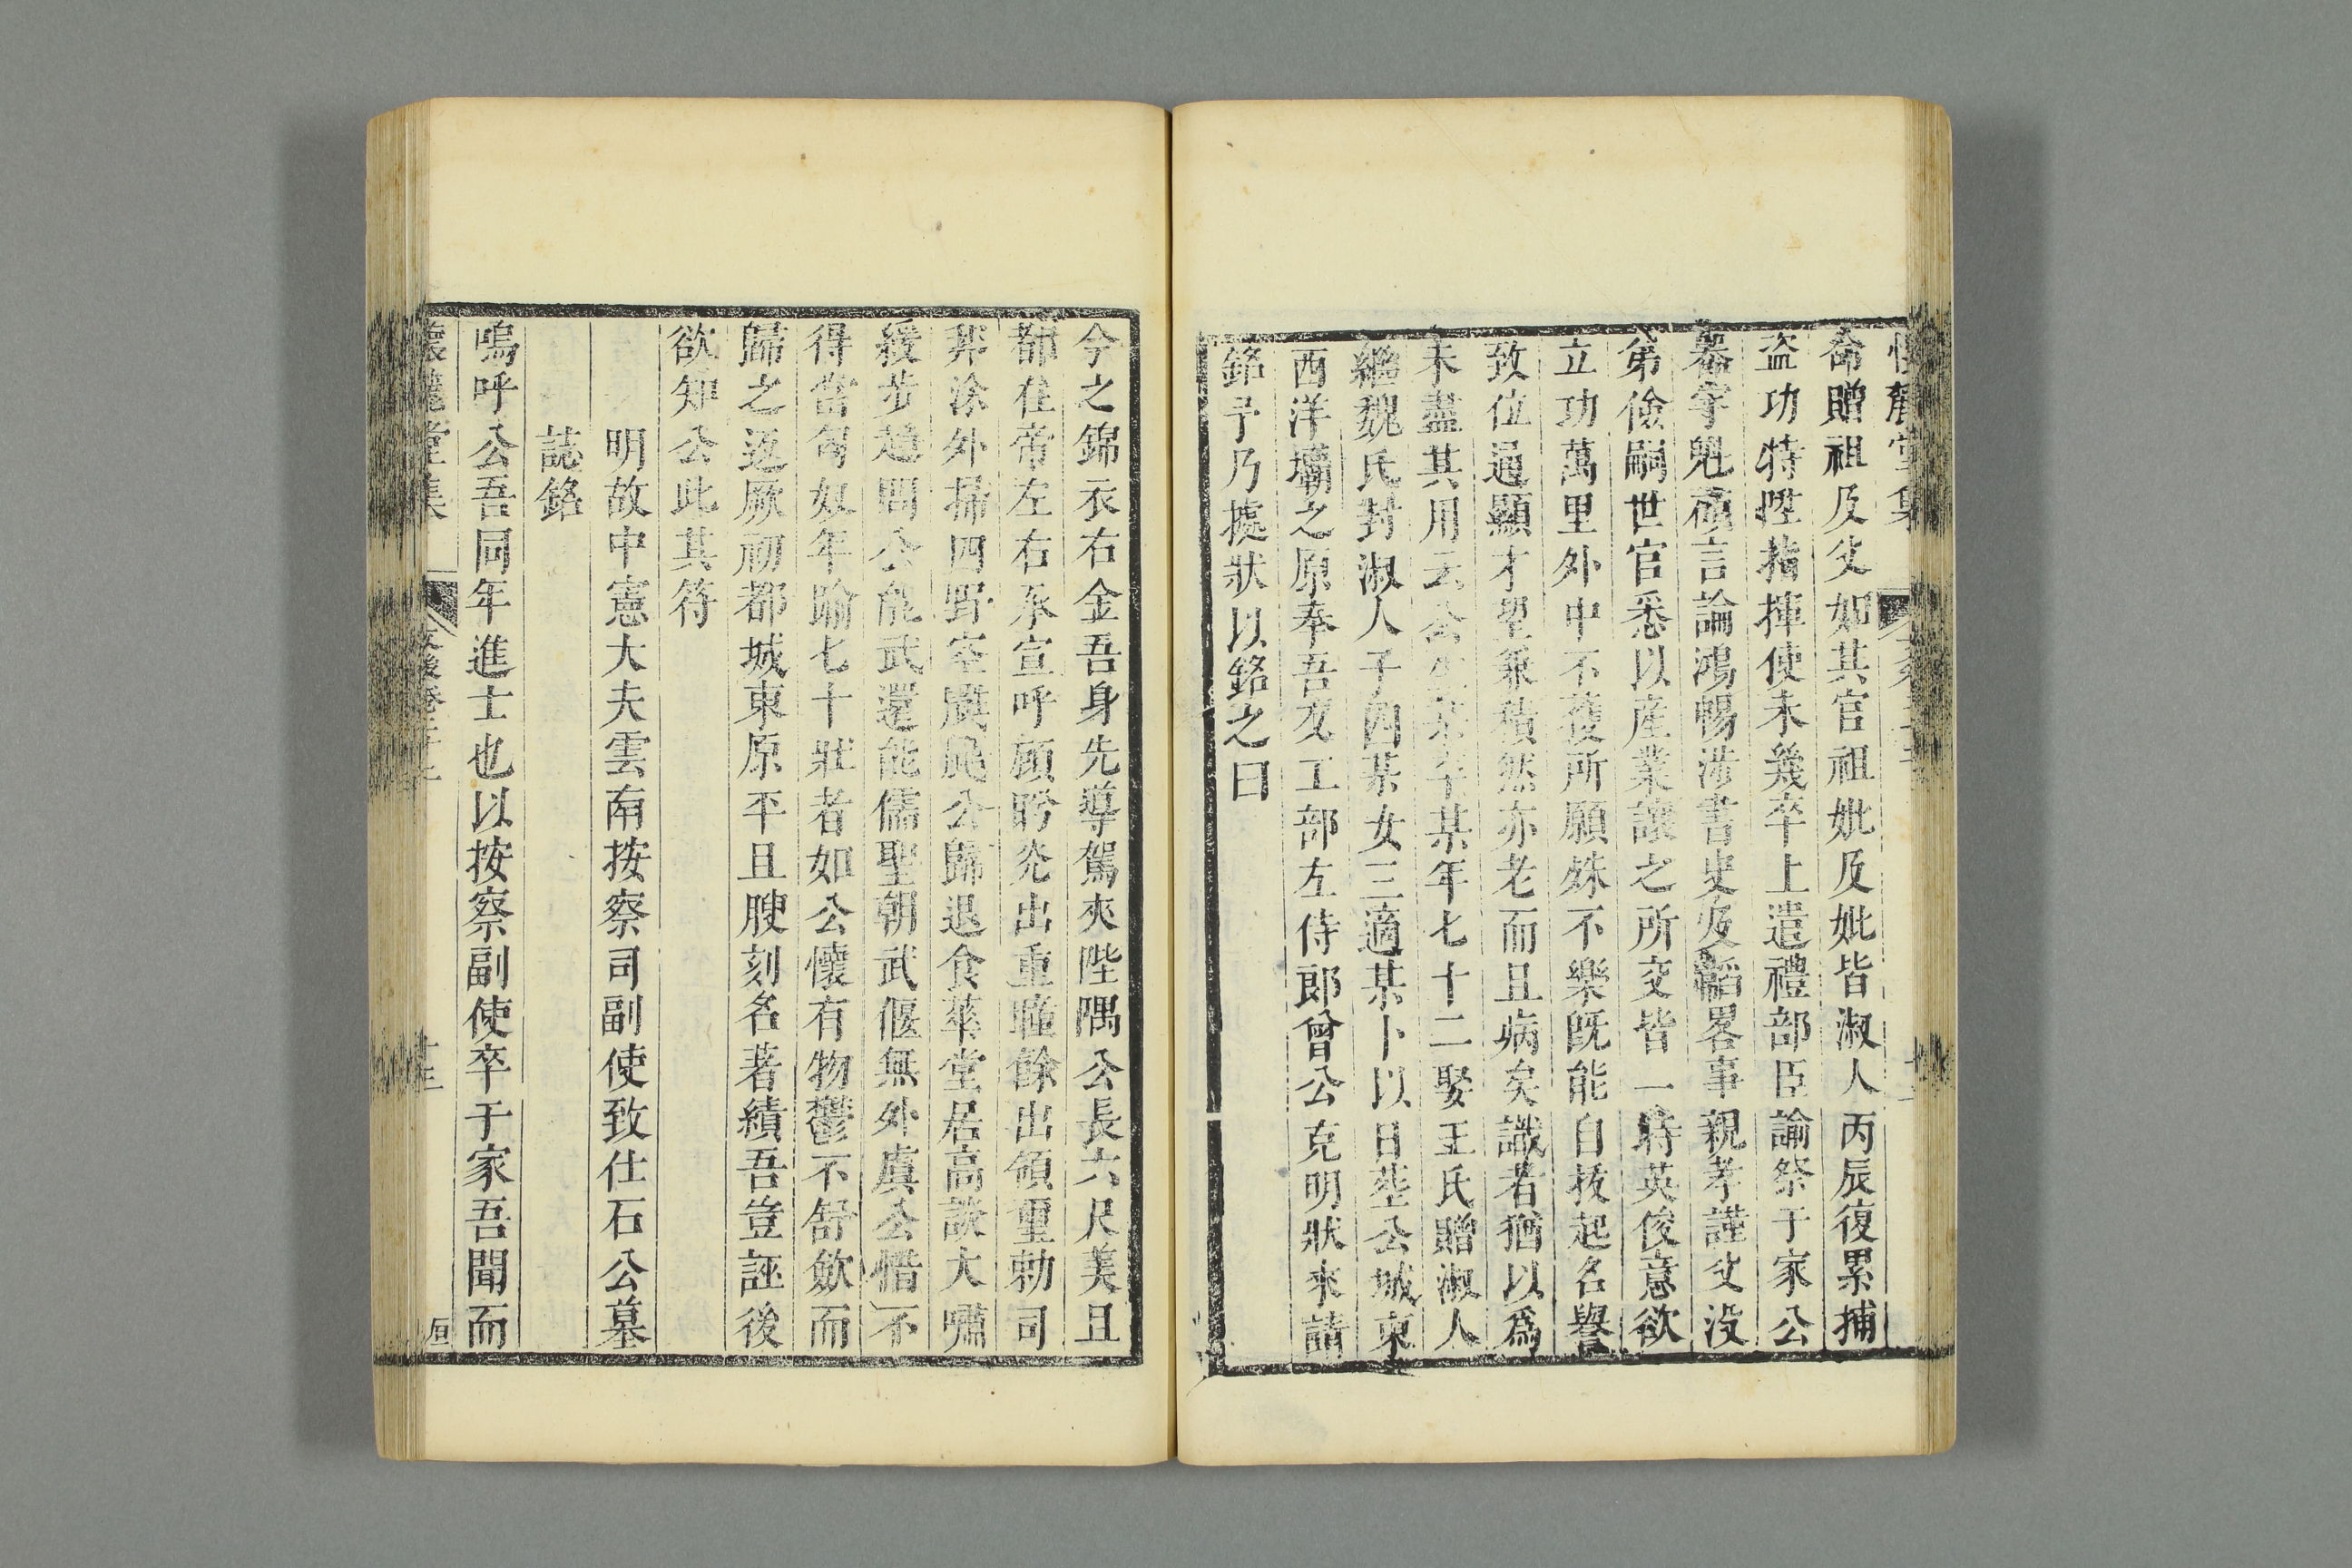 命贈祖及父如其官祖妣及妣皆淑人丙辰復累捕
盜功特陞指揮使未幾卒上遣禮部臣諭祭于家公
器宇魁碩言論鴻暢涉書史及韜畧事親孝謹父没
弟儉嗣世官悉以産業讓之所交皆一時英俊意欲
立功萬里外中不獲所願殊不樂既能自抜起名譽
致位通顯才望兼積然亦老而且病矣識者猶以爲
未盡其用云公生某卒某年七十二娶王氏贈淑人
繼魏氏封淑人子四某女三適某卜以日塟公城東
西洋壩之原奉吾友工部左侍郎曾公克明狀來請
銘予乃摭狀以銘之曰
今之錦衣右金吾身先導駕夾陛隅公長六尺美且
都在帝左右承宣呼顧盻光出重瞳餘出領璽勅司
郊涂外掃四野室廣毗公歸退食華堂居高談大嘯
緩步趨問公能武還能儒聖朝武偃無外虞公惜不
得當匈奴年踰七十壯者如公懷有物鬱不舒歛而
歸之返厥初都城東原平且腴刻名著績吾豈誣後
欲知公此其符
明故中憲大夫雲南按察司副使致仕石公墓
誌銘
嗚呼公吾同年進士也以按察副使卒于家吾聞而
懷麓堂集